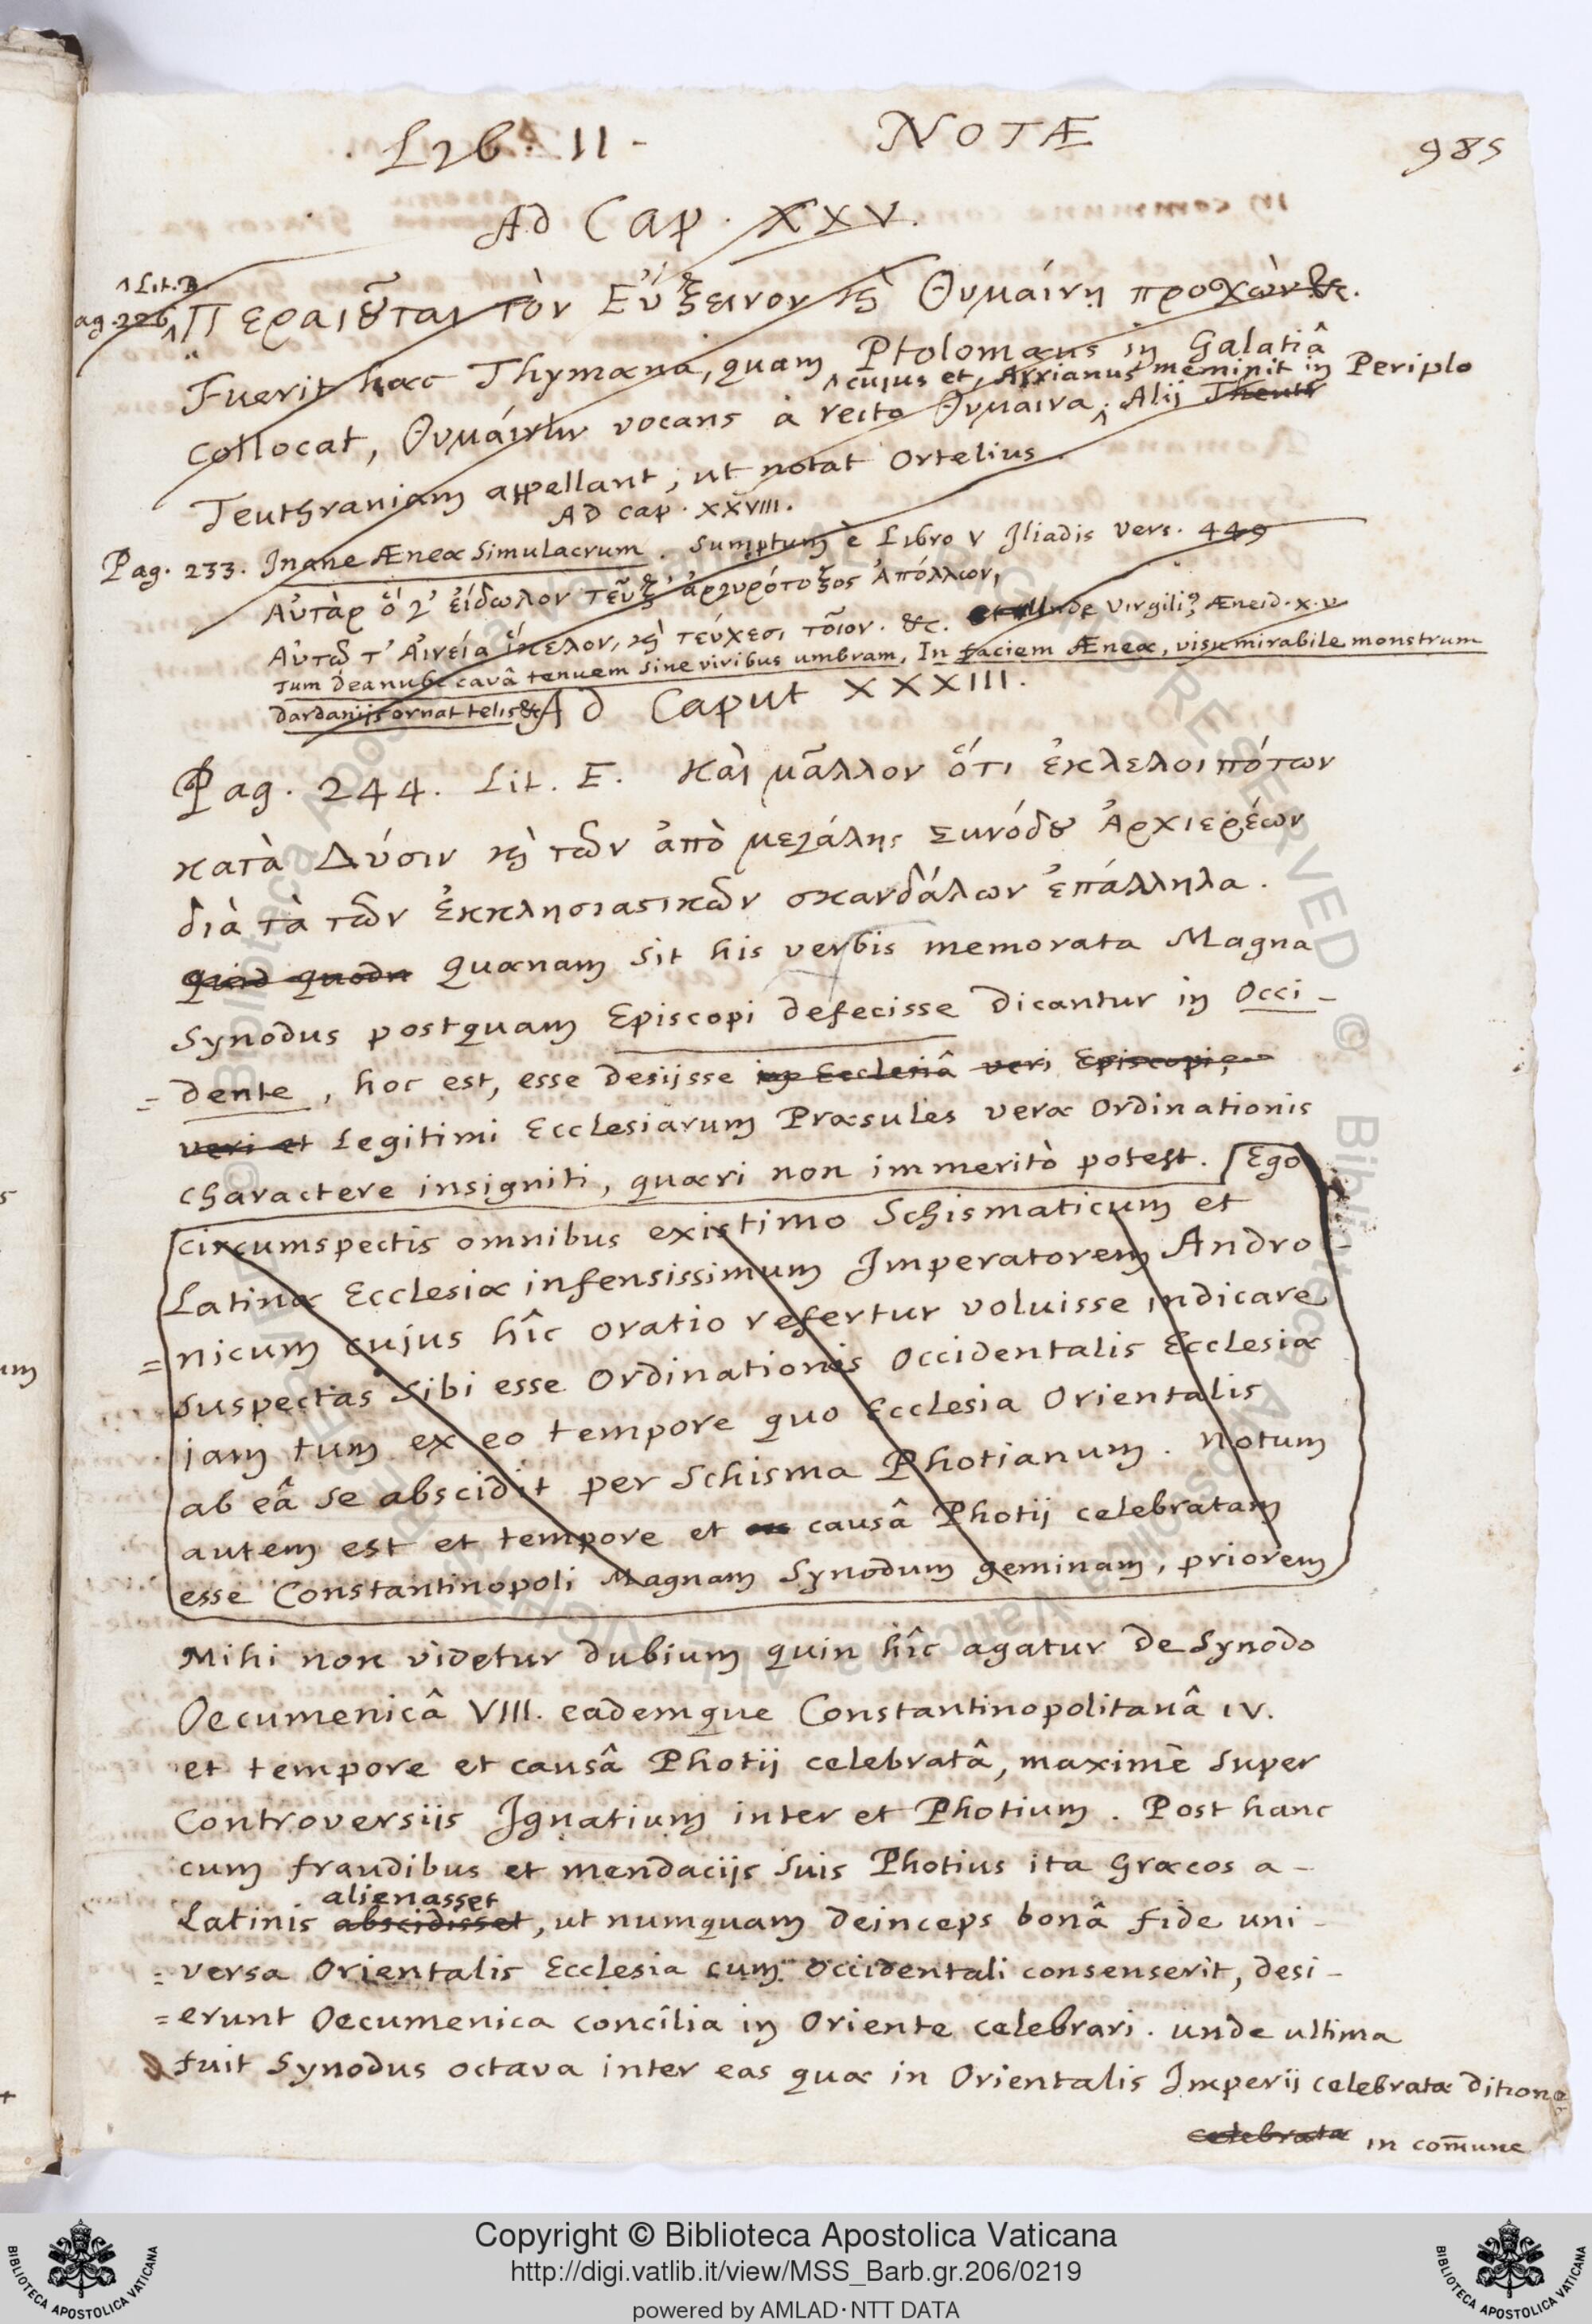 Lib. II - NOTÆ 985
Ad Cap. XXV.
^Lit. B.
ag. 226 ^Περαιοῦται τὸν Εὔξεινον καὶ Θυμαίνῃ προσχὼν &c.
Fuerit hæc Thymæna, quam Ptolomæus in Galatiâ
^cujus et Arrianus meminit in Periplo
collocat, Θυμαίνην vocans à recto Θυμαινα^. Alij Theuth
Teuthraniam appellant, ut notat Ortelius.
Ad cap. XXVIII.
Pag. 233. Inane Æneæ Simulacrum. Sumptum è Libro V Iliadis Vers. 449
Αὐτὰρ ὅ γ' εἴδωλον τεῦξ' ἀργυρότοξος Ἀπόλλων,
Αὐτῷ τ' Αἰνείᾳ ἴκελον, καὶ τεύχεσι τοῖον. &c. Unde Virgilius Æneid. X. v
Tum dea nube cavâ tenuem sine viribus umbram, In faciem Æneæ, visu mirabile monstrum
Dardanijs ornat telis &c
Ad Caput XXXIII.
Pag. 244. Lit. E. Καὶ μᾶλλον ὅτι ἐκλελοιπότων
κατὰ Δύσιν καὶ τῶν ἀπὸ μεγάλης Συνόδου Ἀρχιερέων
διὰ τὰ τῶν Ἐκκλησιαστικῶν σκανδάλων ἐπάλληλα.
Quid quodn Quænam sit his verbis memorata Magna
Synodus postquam Episcopi defecisse dicantur in Occi-
=dente, hoc est, esse desijsse in Ecclesiâ veri Episcopi,
veri et Legitimi Ecclesiarum Præsules veræ Ordinationis
charactere insigniti, quæri non immeritò potest. [Ego
circumspectis omnibus existimo Schismaticum et
Latinæ Ecclesiæ infensissimum Imperatorem Andro-
=nicum cujus hîc oratio refertur voluisse indicare
suspectas sibi esse Ordinationes Occidentalis Ecclesiæ
jam tum ex eo tempore quo Ecclesia Orientalis
ab eâ se abscidit per Schisma Photianum. Notum
autem est et tempore et causâ Photij celebratam
esse Constantinopoli Magnam Synodum geminam, priorem
Mihi non videtur dubium quin hîc agatur de Synodo
Oecumenicâ VIII. eademque Constantinopolitanâ IV.
et tempore et causâ Photij celebratâ, maximè super
Controversiis Ignatium inter et Photium. Post hanc
cum fraudibus et mendacijs suis Photius ita Græcos a-
alienasset
Latinis abscidisset, ut numquam deinceps bonâ fide uni-
=versa Orientalis Ecclesia cum Occidentali consenserit, desi-
=erunt Oecumenica concilia in Oriente celebrari. unde ultima
fuit Synodus octava inter eas quæ in Orientalis Imperij celebratæ ditione
celebratæ in com̄une
© Biblioteca Apostolica Vaticana
Copyright © Biblioteca Apostolica Vaticana
http://digi.vatlib.it/view/MSS_Barb.gr.206/0219
powered by AMLAD·NTT DATA
BIBLIOTECA APOSTOLICA VATICANA
BIBLIOTECA APOSTOLICA VATICANA